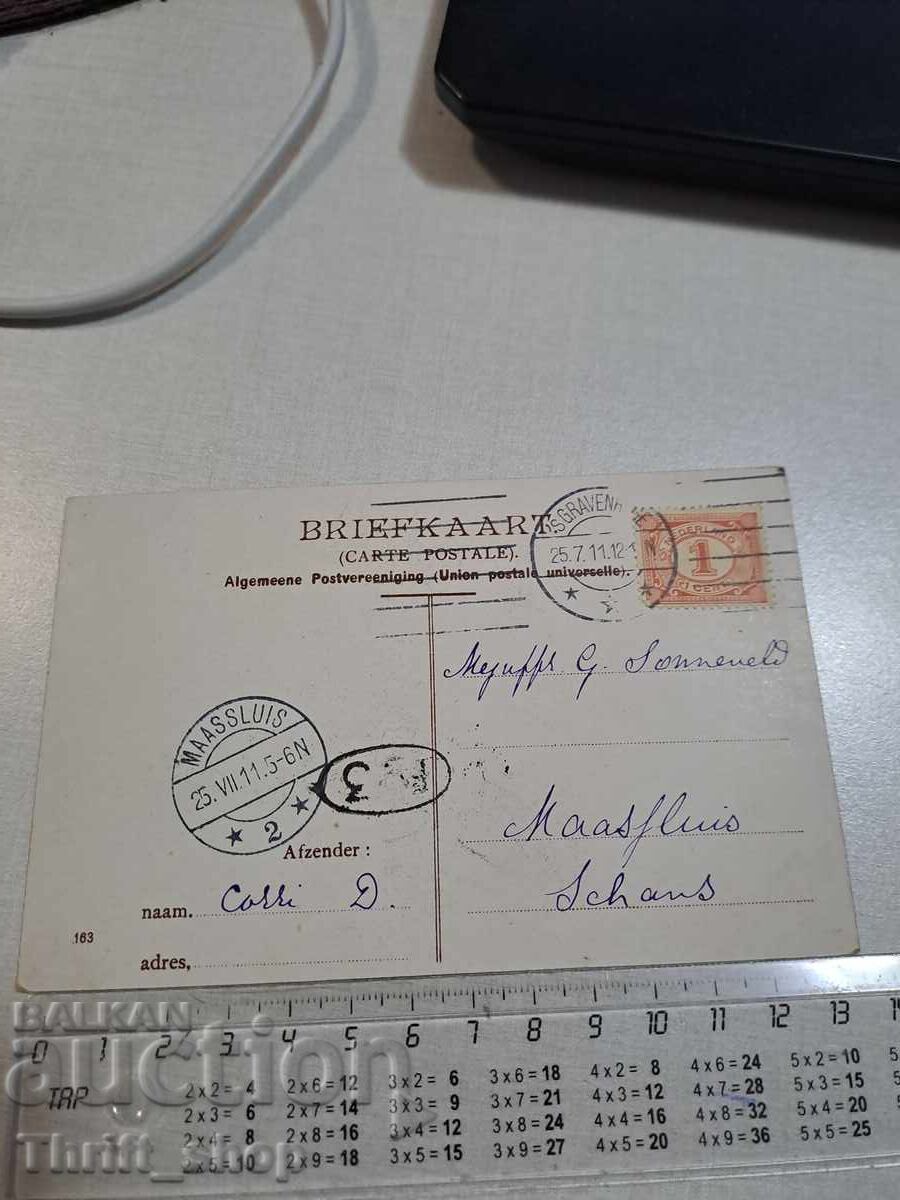 BRIEFKAART
(CARTE POSTALE).
Algemeene Postvereeniging (Union postale universelle).
25.7.11.12-1 N
NEDERLAND
1
1 CENT
Mejuffr G. Sonneveld
MAASSLUIS
25.VII.11.5-6N
2
3
Maassluis
Schans
Afzender:
naam. Corri D.
adres,
163
BALKAN
auction
Thrift_shop
0 1 2 3 4 5 6 7 8 9 10 11 12 13
TAP
2 x 2 = 4 2 x 6 = 12 3 x 2 = 6 3 x 6 = 18 4 x 2 = 8 4 x 6 = 24 5 x 2 = 10
2 x 3 = 6 2 x 7 = 14 3 x 3 = 9 3 x 7 = 21 4 x 3 = 12 4 x 7 = 28 5 x 3 = 15
2 x 4 = 8 2 x 8 = 16 3 x 4 = 12 3 x 8 = 24 4 x 4 = 16 4 x 8 = 32 5 x 4 = 20
2 x 5 = 10 2 x 9 = 18 3 x 5 = 15 3 x 9 = 27 4 x 5 = 20 4 x 9 = 36 5 x 5 = 25